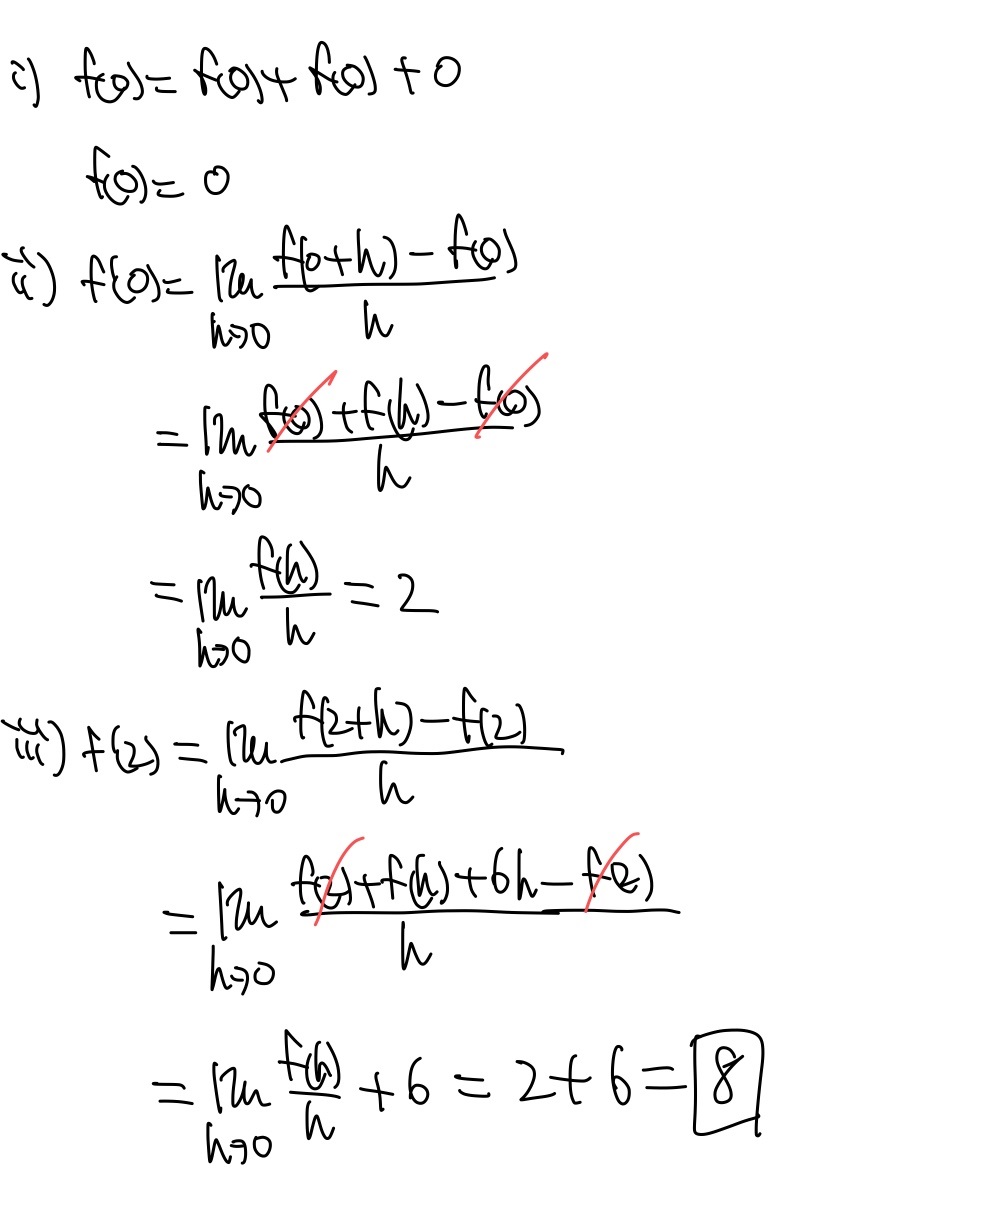 i) f(0) = f(0) + f(0) + 0
f(0) = 0
ii) f'(0) = lim h→0 (f(0+h) - f(0)) / h
= lim h→0 (f(0) + f(h) - f(0)) / h
= lim h→0 f(h) / h = 2
iii) f'(2) = lim h→0 (f(2+h) - f(2)) / h
= lim h→0 (f(2) + f(h) + 6h - f(2)) / h
= lim h→0 f(h) / h + 6 = 2 + 6 = 8